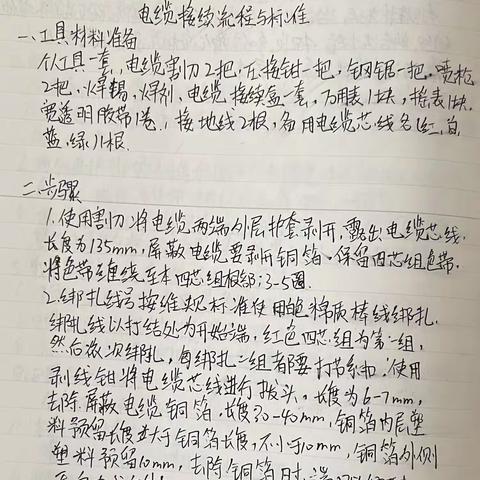 电缆接续流程与标准
一、工具材料准备
个人工具一套，电缆割切2把，压接钳一把，钢锯一把，喷枪
2把，焊锡，焊剂、电缆接续盒一套，万用表1块，摇表1块
宽透明胶带1卷，接地线2根，备用电缆芯线各(红，白
蓝，绿)1根.
二、步骤
1.使用割切将电缆两端外层护套剥开，露出电缆芯线.
长度为135mm，屏蔽电缆要剥开铜箔.保留四芯组色带.
将色带缠绕至本四芯组根部；3-5圈.
2.绑扎线号按维规标准使用白色棉质棒线绑扎.
绑扎线以打结处为开始端，红色四芯组为第一组，
然后依次绑扎，每绑扎一组者都要打节系扣.使用
剥线钳将电缆芯线进行拔头.长度为6-7mm，
去除屏蔽电缆铜箔.长度30-40mm，铜箔内层塑
料预留长度大于铜箔长度，不小于10mm，铜箔外侧
塑料预留10mm，去除铜箔时，